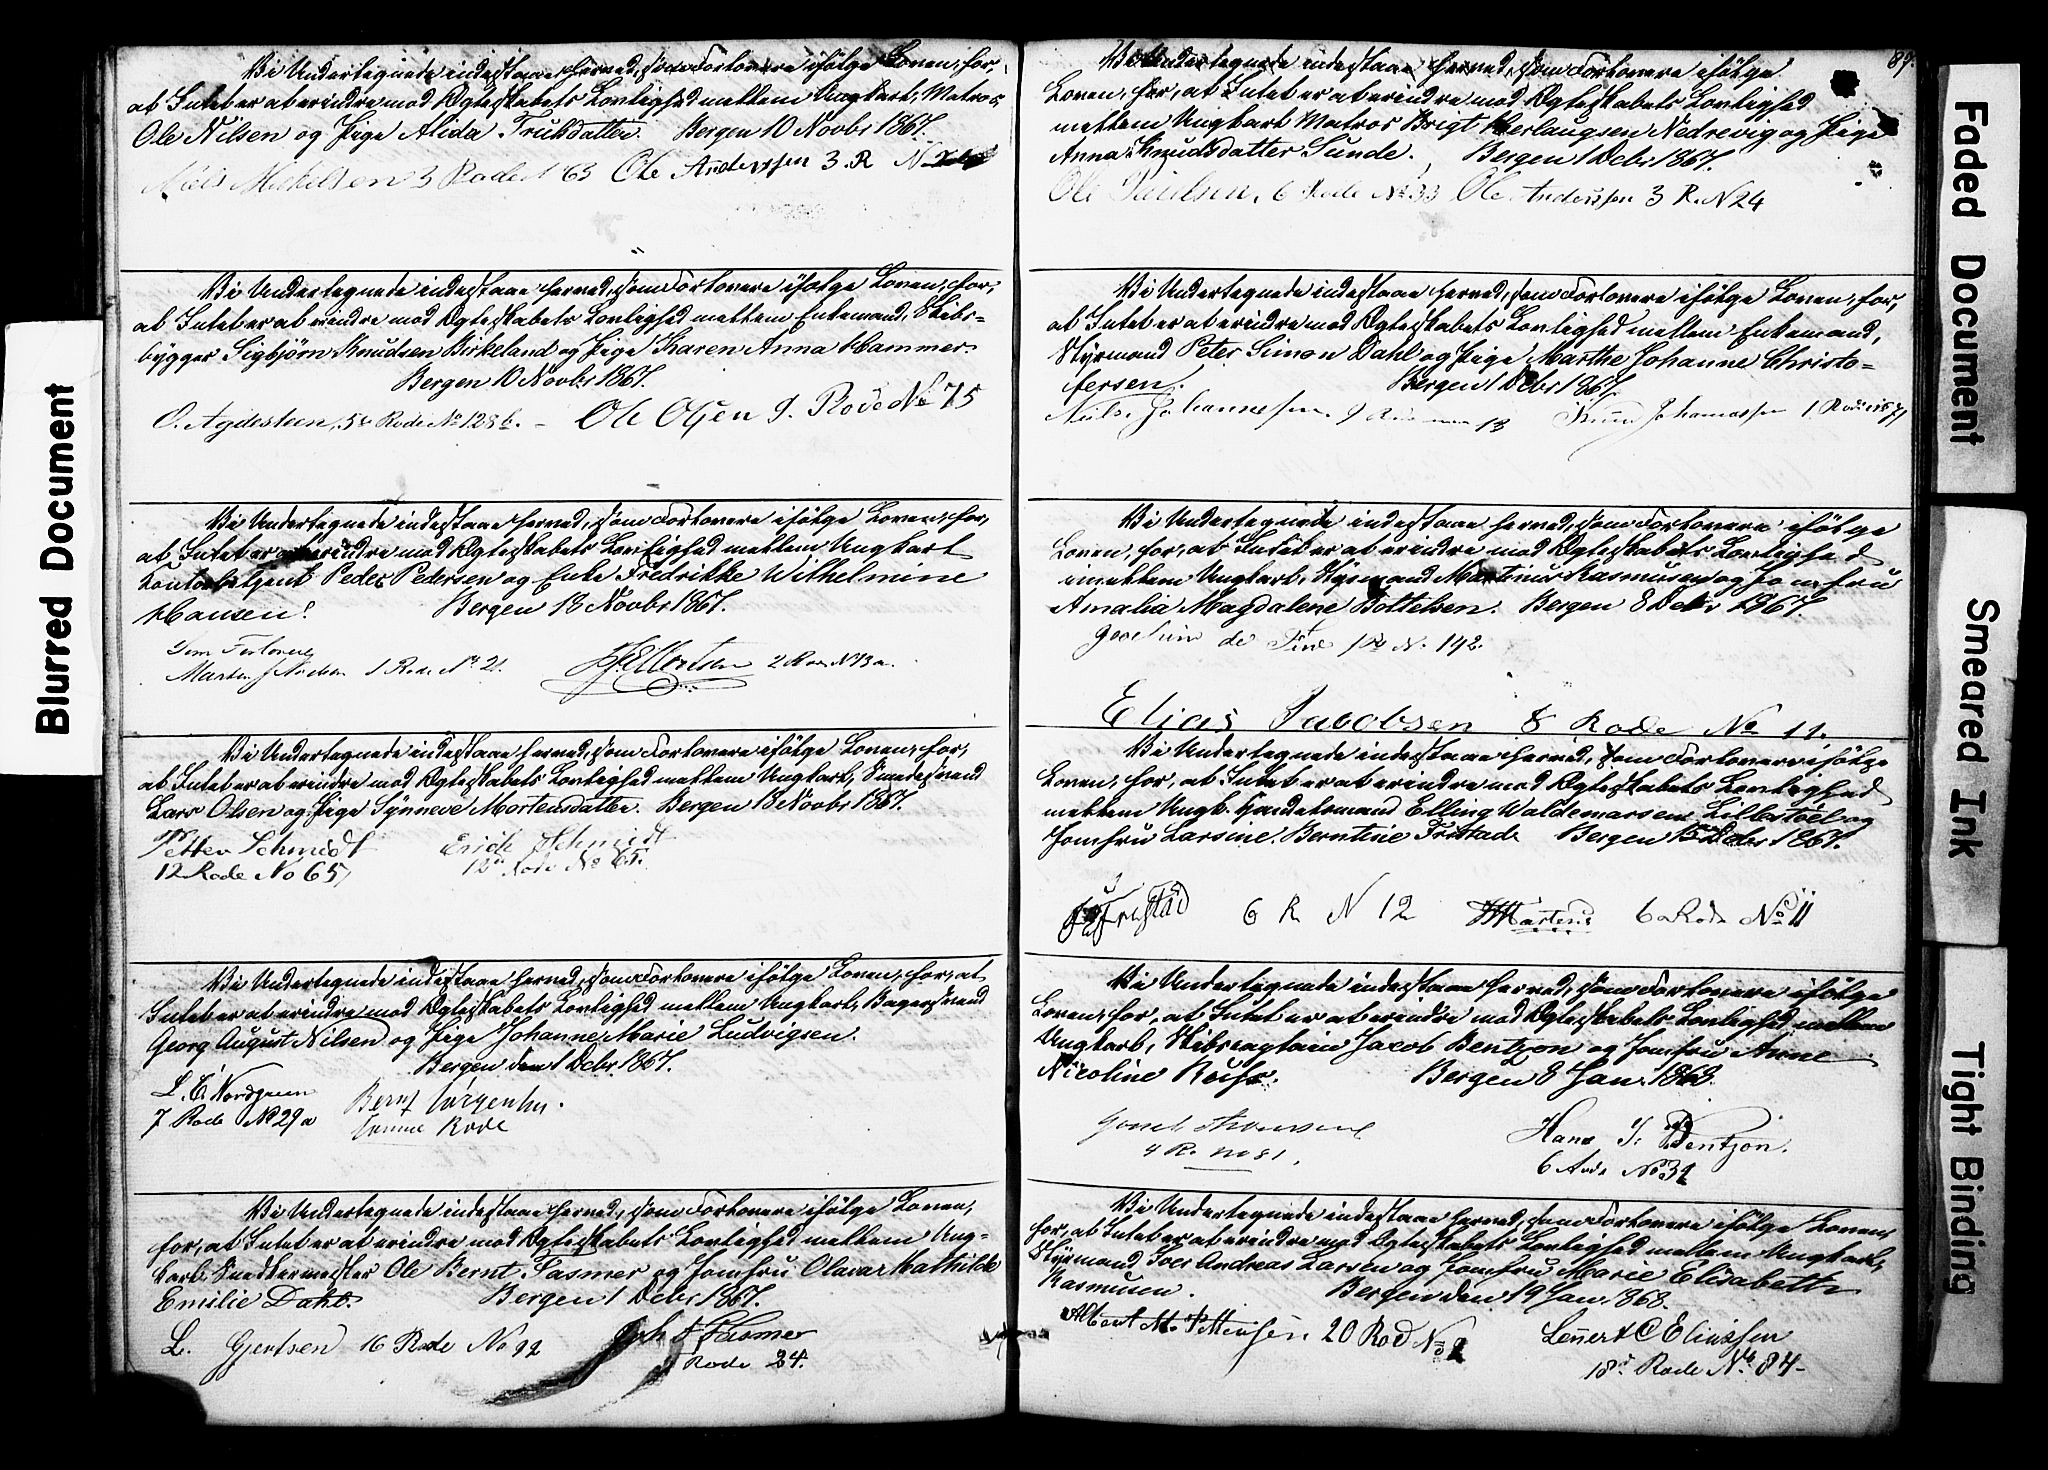 Vi Undertegnede indestaae herved, som Forlovere ifölge Loven, for,
at Intet er at erindre mod Ægteskabets Lovlighed mellem Ungkarl, Matros
Ole Nilsen og Pige Alida Trulsdatter. Bergen 10 Novbr 1867.
Niels Mickelsen 3 Rode 163 Ole Anderssen 3. R N
Vi Undertegnede indestaae herved, som Forlovere ifölge Loven, for,
at Intet er at erindre mod Ægteskabets Lovlighed mellem Enkemand, Skibs-
bygger Sigbjörn Knudsen Birkeland og Pige Karen Anna Hammer.
Bergen 10 Novbr 1867.
O. Agdesteen, 5te Rode No 128 b. - Ole Olsen 9. Rode No 75
Vi Undertegnede indestaae herved, som Forlovere ifölge Loven, for,
at Intet er at erindre mod Ægteskabets Lovlighed mellem Ungkarl
Peder Pedersen og Enke Fredrikke Wilhelmine
Hansen. Bergen 13 Novbr 1867.
Som Forlovere
1 Rode No 21. 2 Rode N 13 a.
Vi Undertegnede indestaae herved, som Forlovere ifölge Loven, for,
at Intet er at erindre mod Ægteskabets Lovlighed mellem Ungkarl, Smedesvend
Lars Olsen og Pige Synneve Mortensdatter. Bergen 13 Novbr 1867.
Petter Schmidt Erick Schmidt
12 Rode No 65, 12te Rode No 65.
Vi Undertegnede indestaae herved, som Forlovere ifölge Loven, for, at
Intet er at erindre mod Ægteskabets Lovlighed mellem Ungkarl, Bagersvend
Georg August Nilsen og Pige Johanne Marie Ludvigsen.
Bergen den 1 Debr 1867.
L. E. Nordgreen Bernt
7 Rode No 29 a Rode
Vi Undertegnede indestaae herved, som Forlovere ifölge Loven,
for, at Intet er at erindre mod Ægteskabets Lovlighed mellem Ung-
karl Snedkermester Ole Bernt Sasmer og Jomfru Olava Mathilde
Emilie Dahl. Bergen 1 Debr 1867.
L. Gjertsen 16 Rode No 92 Joh F Sasmer
Rode 24.
89.
Vi Undertegnede indestaae herved, som Forlovere ifölge
Loven, for, at Intet er at erindre mod Ægteskabets Lovlighed
mellem Ungkarl Matros Brigt Herlaugsen Nedrevig og Pige
Anna Knudsdatter Sunde. Bergen 1 Debr 1867.
Ole 6 Rode No 33 Ole Anderssen 3 R. N 24
Vi Undertegnede indestaae herved, som Forlovere ifölge Loven, for,
at Intet er at erindre mod Ægteskabets Lovlighed mellem Enkemand,
Styrmand Peter Simon Dahl og Pige Marthe Johanne Christo-
fersen. Bergen 1 Debr 1867.
Niels Johannesen. 9 13 Johannessen 1 Rode
Vi Undertegnede indestaae herved, som Forlovere ifölge
Loven, for, at Intet er at erindre mod Ægteskabets Lovlighed
imellem Ungkarl, Styrmand Martinus Rasmusen og Jomfru
Amalia Magdalene Bottelsen. Bergen 8 Debr 1867.
Joachim de Fine 1 R No. 192.
Elias Jacobsen 8 Rode No 11.
Vi Undertegnede indestaae herved, som Forlovere ifölge
Loven, for, at Intet er at erindre mod Ægteskabets Lovlighed
mellem Ungk. Handelsmand Elling Waldemarsen Lillestöl og
Jomfru Larsine Berntine Fristade Bergen 15 Debr 1867.
6 R N 12 6 Rode No 11
Vi Undertegnede indestaae herved, som Forlovere ifölge
Loven, for, at Intet er at erindre mod Ægteskabets Lovlighed mellem
Ungkarl, Skibscaptain Jacob Bentzon og Jomfru Anne
Nicoline Reusz. Bergen 8 Jan. 1868.
Hans J. Bentzon.
4 R. No 81. 6 Rode No 31
Vi Undertegnede indestaae herved, som Forlovere ifölge Loven,
for, at Intet er at erindre mod Ægteskabets Lovlighed mellem Ungkarl,
Styrmand Iver Andreas Larsen og Jomfru Marie Elisabeth
Rasmusen. Bergen den 19 Jan 1868.
Albert M. 20 Rod No 2 Lennert C Eliassen
18de Rode No 84-
Blurred Document
Faded Document
Smeared Ink
Tight Binding